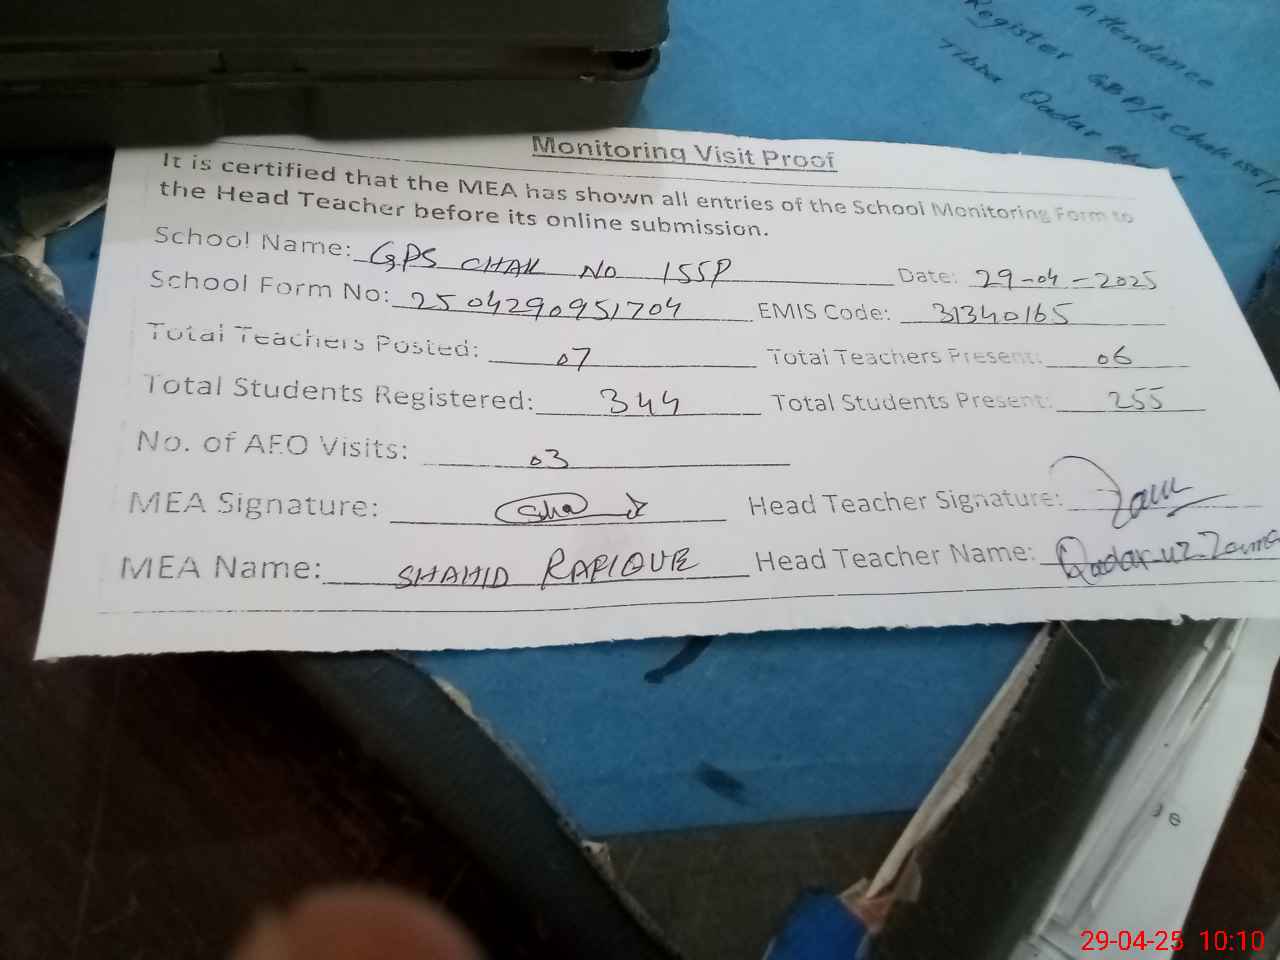 Attendance
Register GBP/S Chak 155/P
Tibba Qadar
Monitoring Visit Proof
It is certified that the MEA has shown all entries of the School Monitoring Form to
the Head Teacher before its online submission.
School Name: GPS CHAK NO 155P Date: 29-04-2025
School Form No: 2504290951704 EMIS Code: 31340165
Total Teachers Posted: 07 Total Teachers Present: 06
Total Students Registered: 344 Total Students Present: 255
No. of AEO Visits: 03
MEA Signature: Head Teacher Signature: Zam
MEA Name: SHAHID RAFIQUE Head Teacher Name: Qadar-uz-Zama
29-04-25 10:10